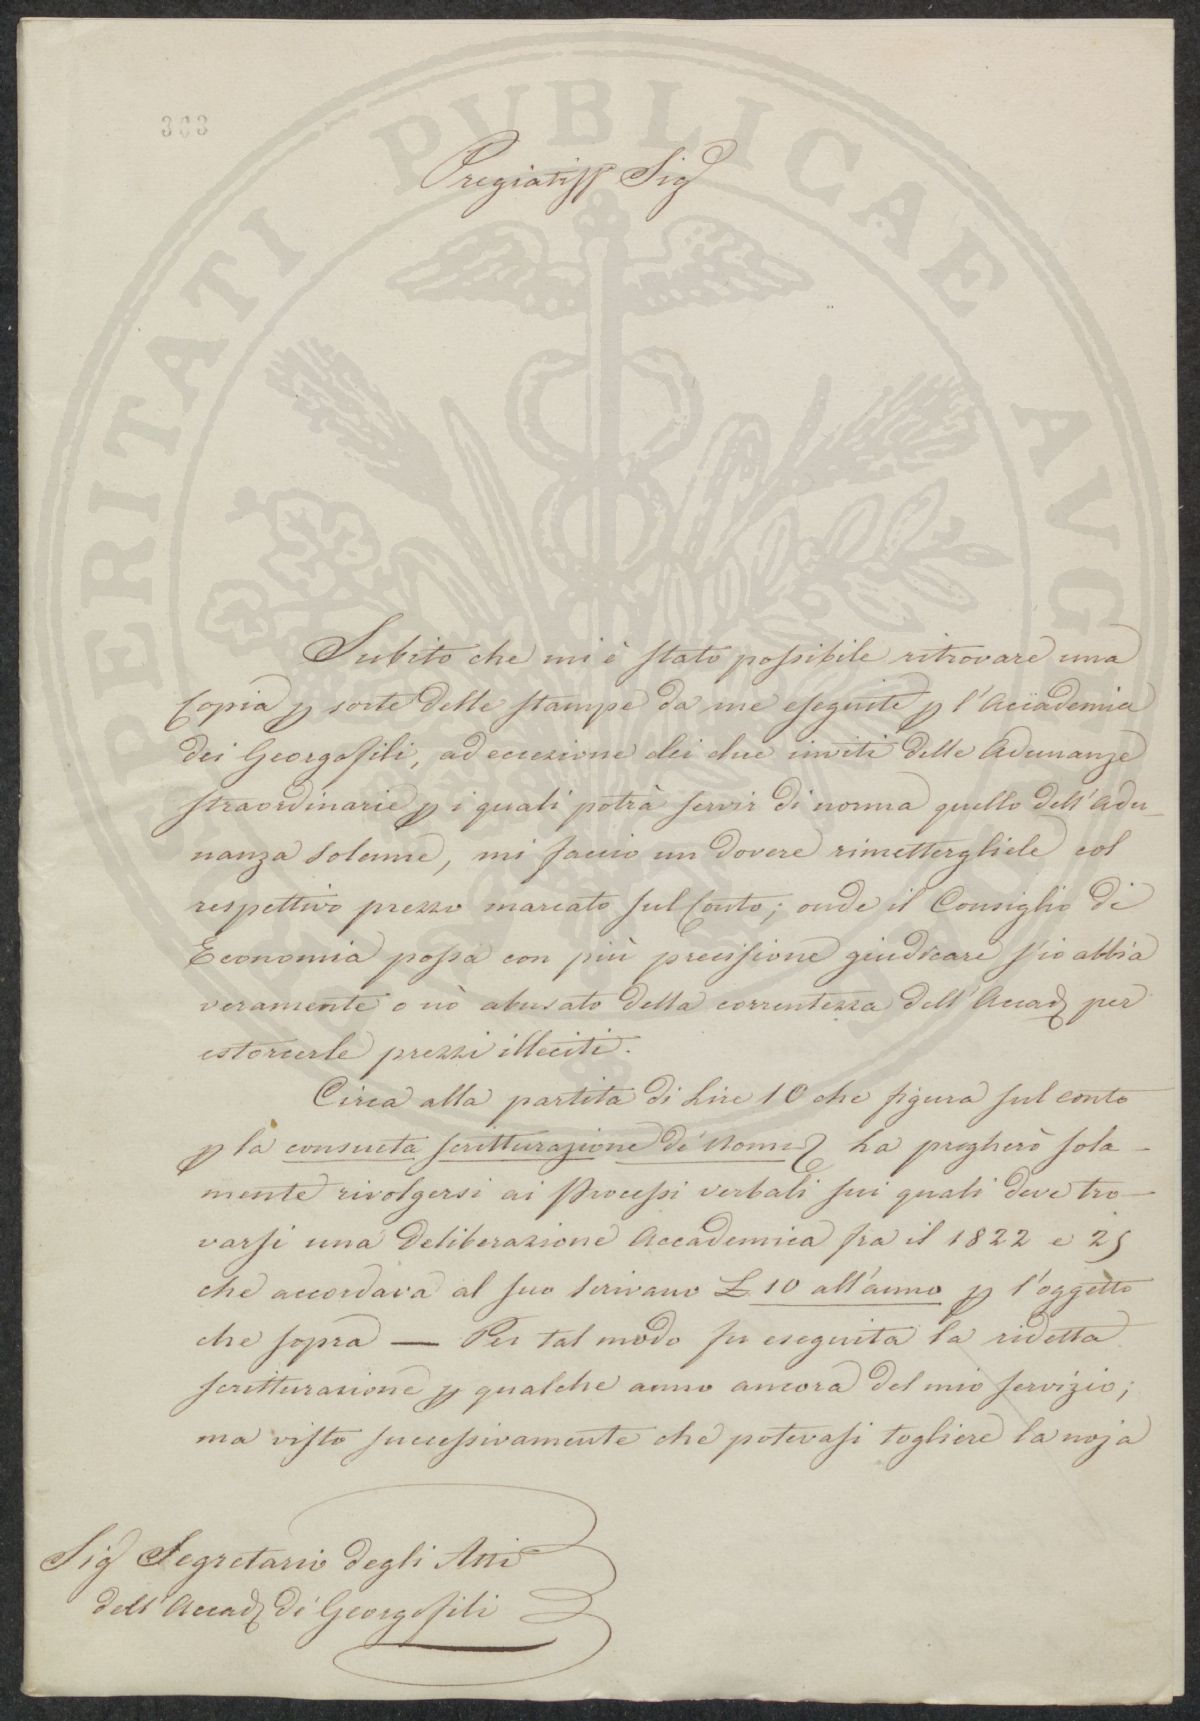 PROSPERITATI PUBLICAE AUGENDAE
303
Pregiatiss Sig
Subito che mi è stato possibile ritrovare una
Copia p sorte delle stampe da me eseguite p l'Accademia
dei Georgofili, ad eccezione dei due inviti delle Adunanze
straordinarie p i quali potrà servir di norma quello dell'Adu-
nanza solenne, mi faccio un dovere rimettergliele col
respettivo prezzo marcato sul Conto; onde il Consiglio di
Economia possa con più precisione giudicare s'io abbia
veramente o nò abusato della correntezza dell'Accad per
estorcerle prezzi illeciti.
Circa alla partita di Lire 10 che figura sul conto
p la consueta scritturazione de' Nomi, La pregherò sola-
mente rivolgersi ai Processi verbali sui quali deve tro-
varsi una deliberazione Accademica fra il 1822 e 25
che accordava al suo scrivano £ 10 all'anno p l'oggetto
che sopra — Per tal modo fu eseguita la ridetta
scritturazione p qualche anno ancora del mio servizio;
ma visto successivamente che potevasi togliere la noja
Sig Segretario degli Atti
dell'Accad de' Georgofili